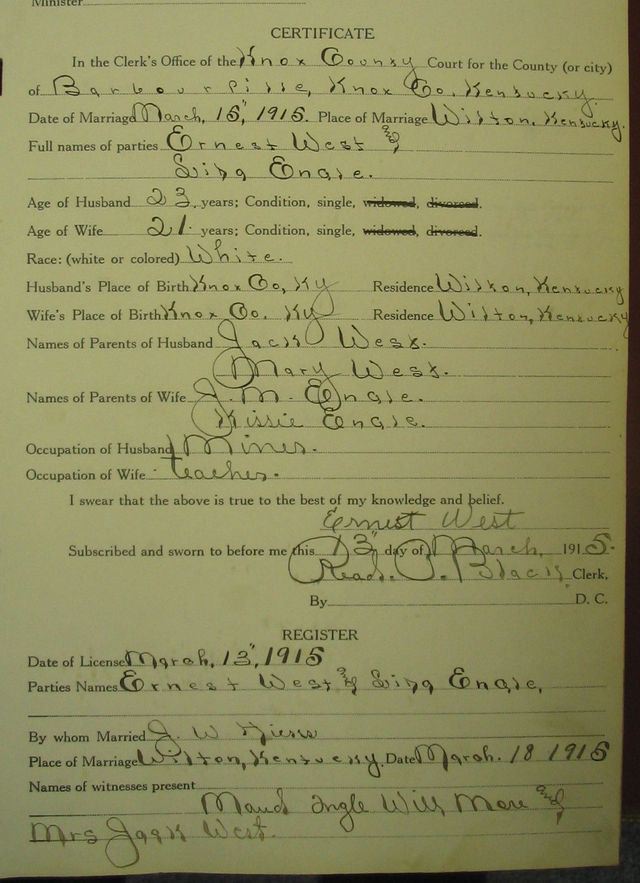 Minister
CERTIFICATE
In the Clerk's Office of the Knox County Court for the County (or city)
of Barbourville, Knox Co. Kentucky.
Date of Marriage March, 15", 1915. Place of Marriage Wilton, Kentucky.
Full names of parties Ernest West and
Engle.
Age of Husband 23 years; Condition, single, widowed, divorced.
Age of Wife 21 years; Condition, single, widowed, divorced.
Race: (white or colored) White.
Husband's Place of Birth Knox Co, Ky Residence Wilton, Kentucky
Wife's Place of Birth Knox Co. Ky Residence Wilton, Kentucky
Names of Parents of Husband Jack West.
Mary West.
Names of Parents of Wife J. M. Engle.
Kissie Engle.
Occupation of Husband Miner.
Occupation of Wife teacher.
I swear that the above is true to the best of my knowledge and belief.
Ernest West
Subscribed and sworn to before me this 13" day of March, 1915.
Read. P. Black Clerk,
By D. C.
REGISTER
Date of License March, 13", 1915
Parties Names Ernest West and Engle,
By whom Married J. W.
Place of Marriage Wilton, Kentucky. Date March. 18 1915
Names of witnesses present
Maud Ingle Will More and
Mrs Jack West.